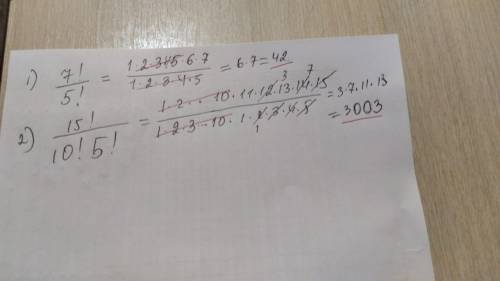 1) 7!/5! = 1·2·3·4·5·6·7/1·2·3·4·5 = 6·7 = 42
2) 15!/10! 5! = 1·2·...·10·11·12·13·14·15/1·2·3·...·10·1·2·3·4·5 = 3·7·11·13
= 3003